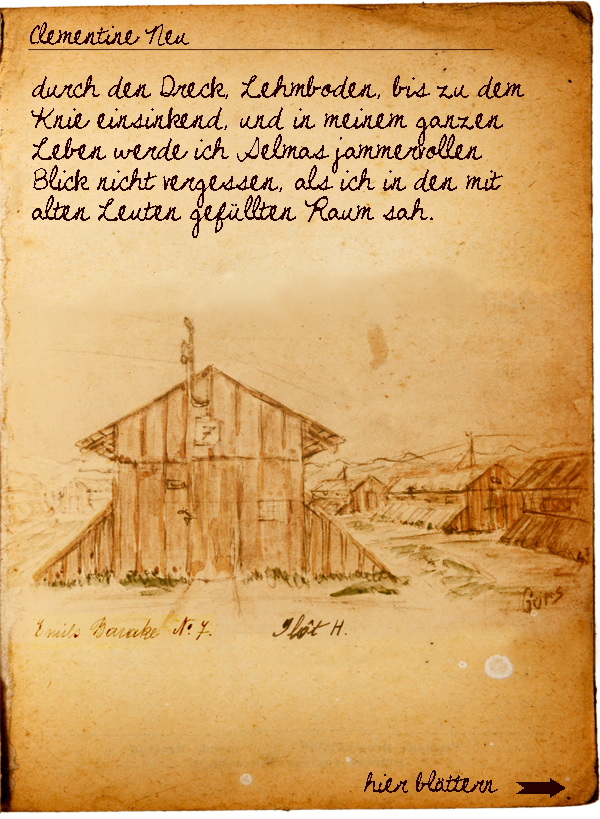 Clementine Neu
durch den Dreck, Lehmboden, bis zu dem
Knie einsinkend, und in meinem ganzen
Leben werde ich Selmas jammervollen
Blick nicht vergessen, als ich in den mit
alten Leuten gefüllten Raum sah.
7
Gurs
Emils Barake No 7. Ilôt H.
hier blättern